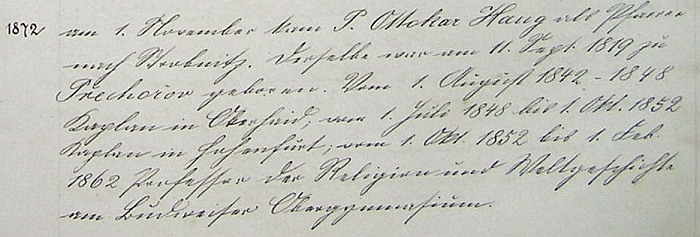 1872 am 1. November kam P. Ottokar Haug als Pfarrer
nach Strobnitz. Derselbe war am 11. Sept. 1819 zu
Přechořov geboren. Vom 1. August 1842 - 1848
Kaplan in Oberhaid, vom 1. Juli 1848 bis 1. Okt. 1852
Kaplan in Hohenfurt; vom 1. Okt. 1852 bis 1. Feb.
1862 Professor der Religion und Weltgeschichte
am Budweiser Obergymnasium.